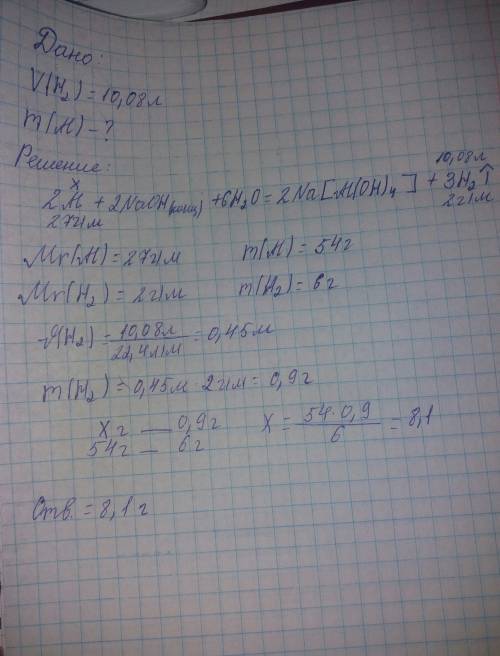 Дано:
V(H₂) = 10,08л
m(Al) - ?
Решение:
x 10,08л
2Al + 2NaOH(конц) + 6H₂O = 2Na[Al(OH)₄] + 3H₂↑
27г/м 2г/м
Mr(Al) = 27г/м m(Al) = 54г
Mr(H₂) = 2г/м m(H₂) = 6г
ϑ(H₂) = 10,08л / 22,4л/м = 0,45м
m(H₂) = 0,45м · 2г/м = 0,9г
Xг — 0,9г X = 54·0,9 / 6 = 8,1
54г — 6г
Отв. = 8,1г